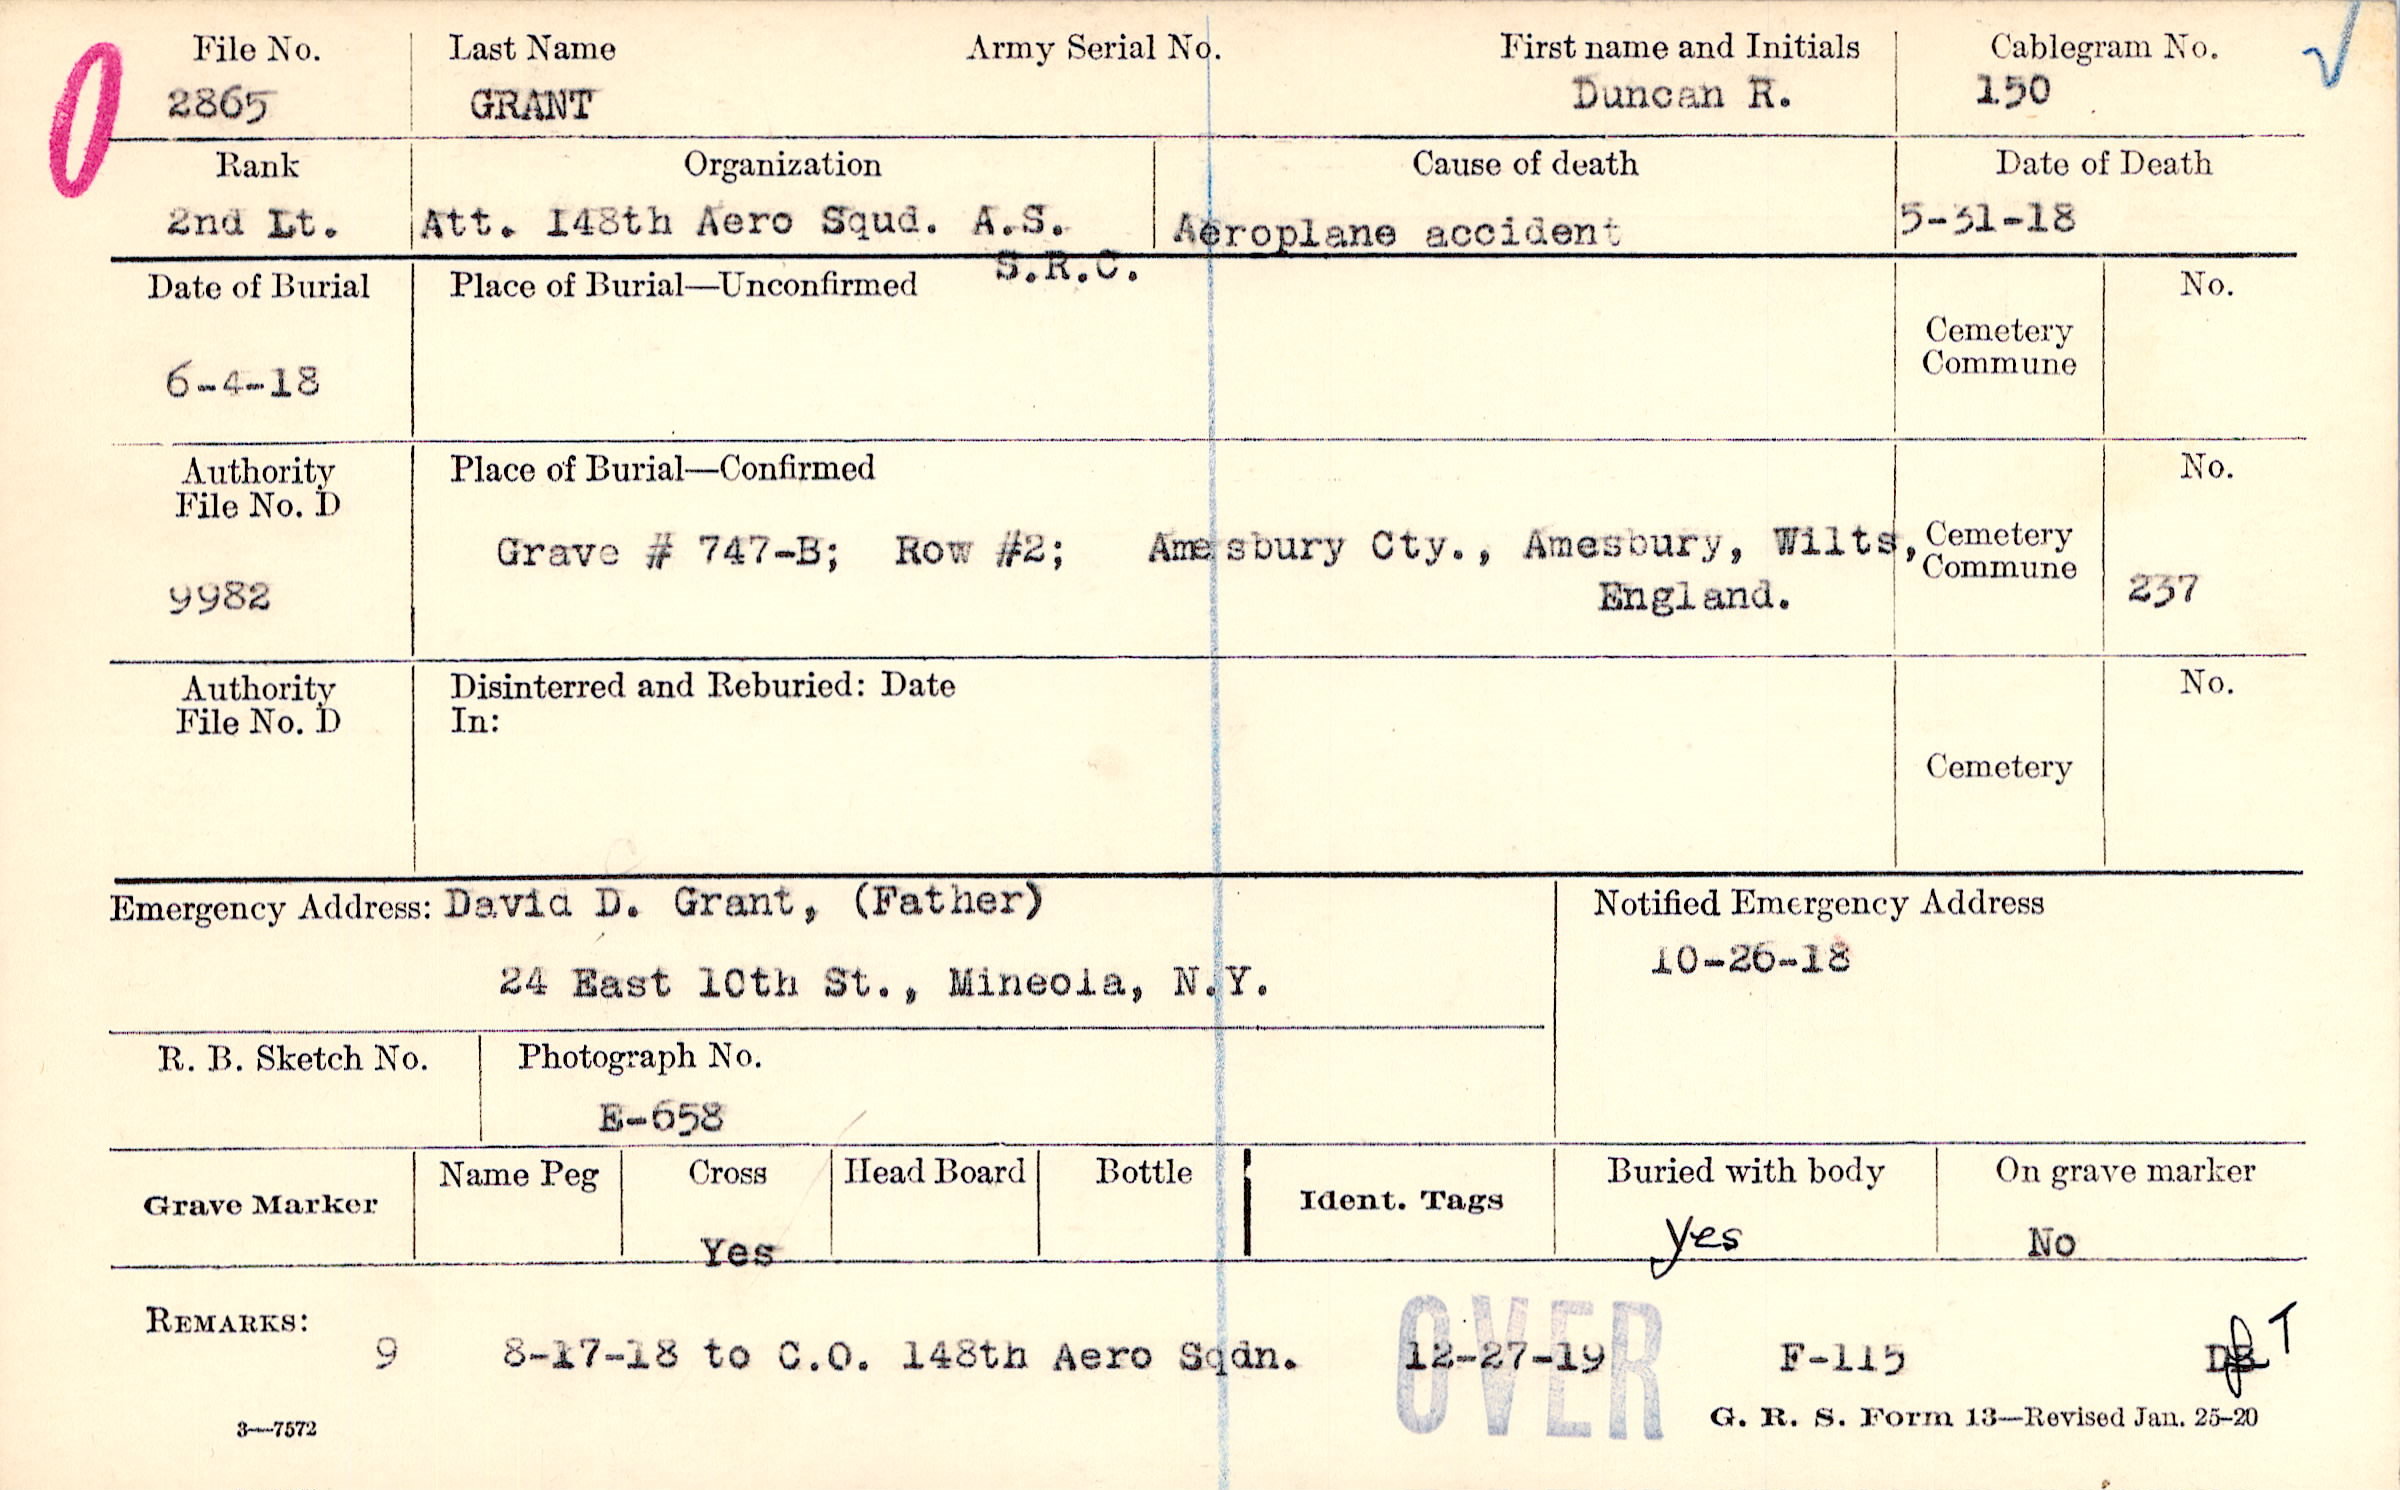 File No. Last Name Army Serial No. First name and Initials Cablegram No.
2865 GRANT Duncan R. 150
Rank Organization Cause of death Date of Death
2nd Lt. Att. 148th Aero Squd. A.S. Aeroplane accident 5-31-18
S.R.C.
Date of Burial Place of Burial—Unconfirmed No.
Cemetery
Commune
6-4-18
Authority Place of Burial—Confirmed No.
File No. D
Grave # 747-B; Row #2; Amesbury Cty., Amesbury, Wilts, Cemetery
Commune
9982 England. 237
Authority Disinterred and Reburied: Date No.
File No. D In:
Cemetery
Emergency Address: David D. Grant, (Father) Notified Emergency Address
24 East 10th St., Mineola, N.Y. 10-26-18
R. B. Sketch No. Photograph No.
E-658
Grave Marker Name Peg Cross Head Board Bottle Ident. Tags Buried with body On grave marker
Yes yes No
REMARKS:
9 8-17-18 to C.O. 148th Aero Sqdn. 12-27-19 F-115
OVER
3—7572 G. R. S. Form 13—Revised Jan. 25-20